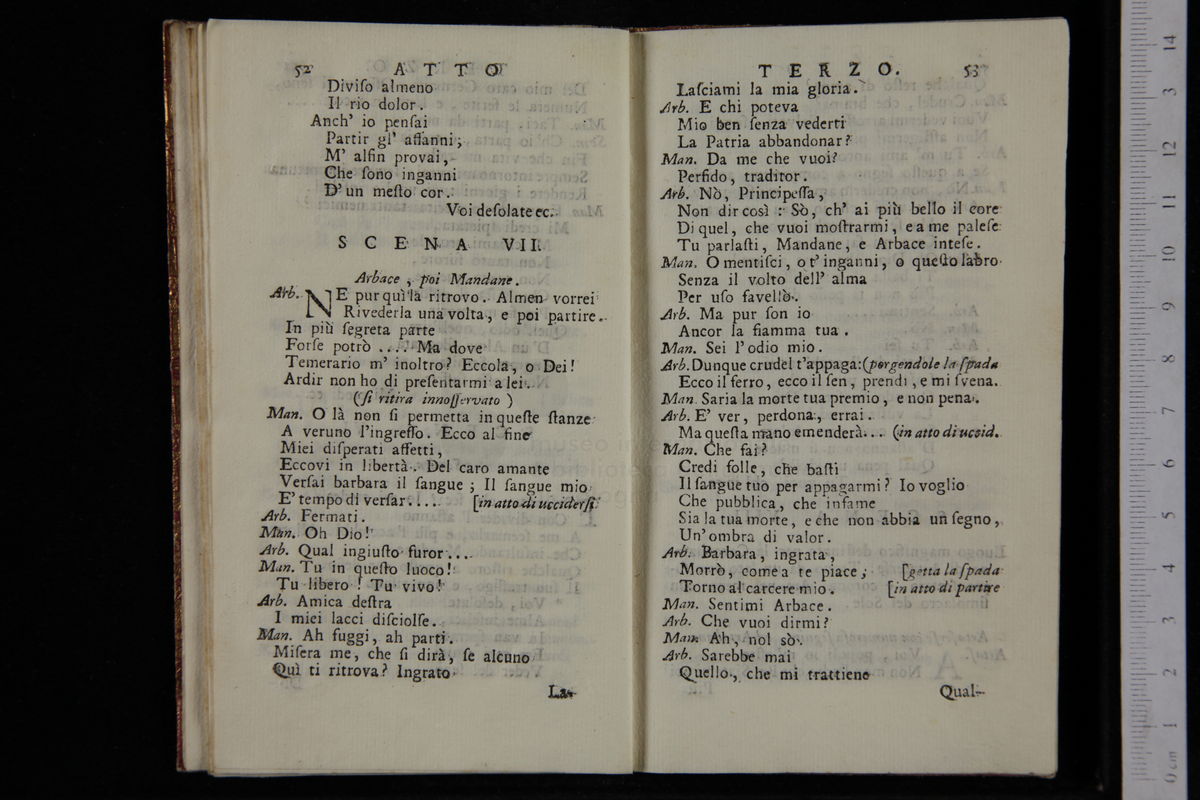 52 ATTO
Diviſo almeno
Il rio dolor.
Anch' io penſai
Partir gl' affanni;
M' alfin provai,
Che ſono inganni
D'un meſto cor.
Voi deſolate ec.
SCENA VII.
Arbace, poi Mandane.
Arb. NE pur quì la ritrovo. Almen vorrei
Rivederla una volta, e poi partire.
In più ſegreta parte
Forſe potrò .... Ma dove
Temerario m' inoltro? Eccola, o Dei!
Ardir non ho di preſentarmi a lei.
(ſi ritira innoſſervato)
Man. O là non ſi permetta in queſte ſtanze
A veruno l'ingreſſo. Ecco al fine
Miei diſperati affetti,
Eccovi in libertà. Del caro amante
Verſai barbara il ſangue; Il ſangue mio
E' tempo di verſar.... [in atto di ucciderſi.
Arb. Fermati.
Man. Oh Dio!
Arb. Qual ingiuſto furor...
Man. Tu in queſto luoco!
Tu libero! Tu vivo!
Arb. Amica deſtra
I miei lacci diſciolſe.
Man. Ah fuggi, ah parti.
Miſera me, che ſi dirà, ſe alcuno
Quì ti ritrova? Ingrato
La-
TERZO. 53
Laſciami la mia gloria.
Arb. E chi poteva
Mio ben ſenza vederti
La Patria abbandonar?
Man. Da me che vuoi?
Perfido, traditor.
Arb. Nò, Principeſſa,
Non dir così: Sò, ch' ai più bello il core
Di quel, che vuoi moſtrarmi, e a me paleſe
Tu parlaſti, Mandane, e Arbace inteſe.
Man. O mentiſci, o t'inganni, o queſto labro
Senza il volto dell' alma
Per uſo favellò.
Arb. Ma pur ſon io
Ancor la fiamma tua.
Man. Sei l'odio mio.
Arb. Dunque crudel t'appaga: (porgendole la ſpada
Ecco il ferro, ecco il ſen, prendi, e mi ſvena.
Man. Saria la morte tua premio, e non pena.
Arb. E' ver, perdona, errai.
Ma queſta mano emenderà... (in atto di uccid.
Man. Che fai?
Credi folle, che baſti
Il ſangue tuo per appagarmi? Io voglio
Che pubblica, che infame
Sia la tua morte, e che non abbia un ſegno,
Un' ombra di valor.
Arb. Barbara, ingrata,
Morrò, come a te piace; [getta la ſpada
Torno al carcere mio. [in atto di partire
Man. Sentimi Arbace.
Arb. Che vuoi dirmi?
Man. Ah, nol sò.
Arb. Sarebbe mai
Quello, che mi trattiene
Qual-
14
13
12
11
10
9
8
7
6
5
4
3
2
1
0 cm